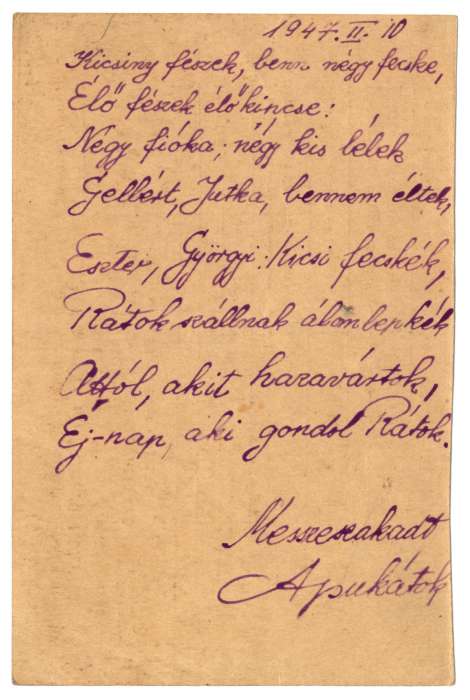 1947. II. 10
Kicsiny fészek, benn négy fecske,
Élő fészek élő kincse:
Négy fióka; négy kis lélek
Gellért, Jutka, bennem éltek,
Eszter, Györgyi: Kicsi fecskék,
Rátok szállnak álomlepkék
Attól, akit hazavártok,
Éj-nap, aki gondol Rátok.
Messzeszakadt
Apukátok